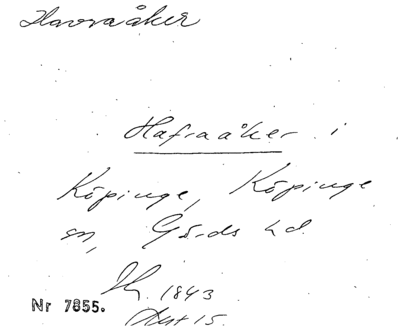 Havraåker
Hafraåker i
Köpinge, Köpinge
sn, Gärds hd.
1843
Nr 7855.